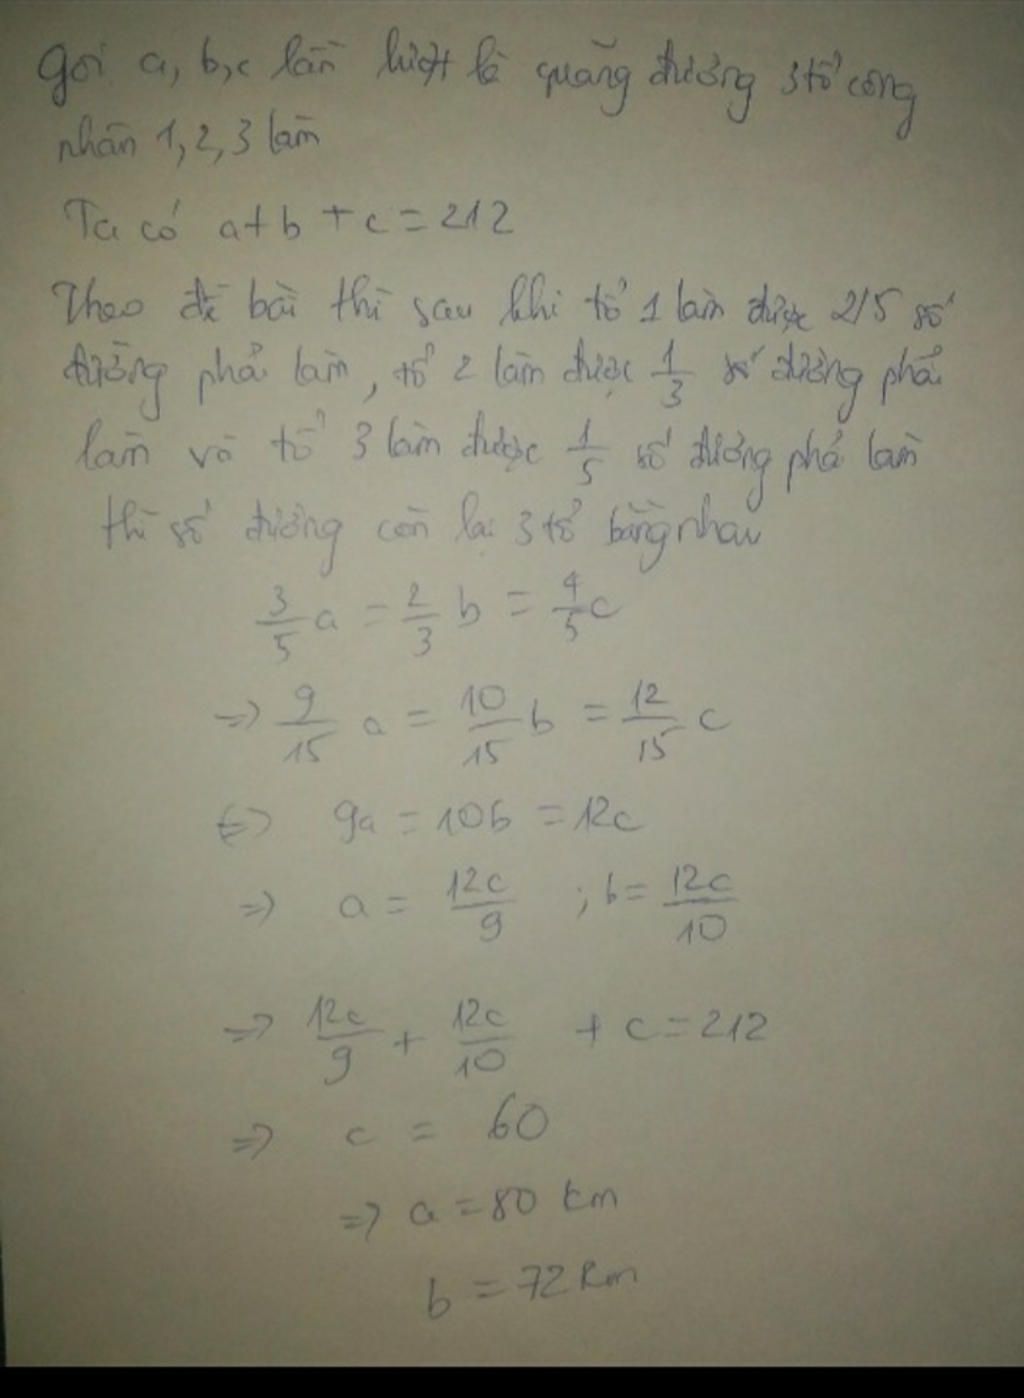 Gọi a, b, c lần lượt là quãng đường 3 tổ công
nhân 1, 2, 3 làm
Ta có a + b + c = 212
Theo đề bài thì sau khi tổ 1 làm được 2/5 số
đường phải làm, tổ 2 làm được 1/3 số đường phải
làm và tổ 3 làm được 1/5 số đường phải làm
thì số đường còn lại 3 tổ bằng nhau
3/5 a = 2/3 b = 4/5 c
=> 9/15 a = 10/15 b = 12/15 c
<=> 9a = 10b = 12c
=> a = 12c/9 ; b = 12c/10
=> 12c/9 + 12c/10 + c = 212
=> c = 60
=> a = 80 km
b = 72 km